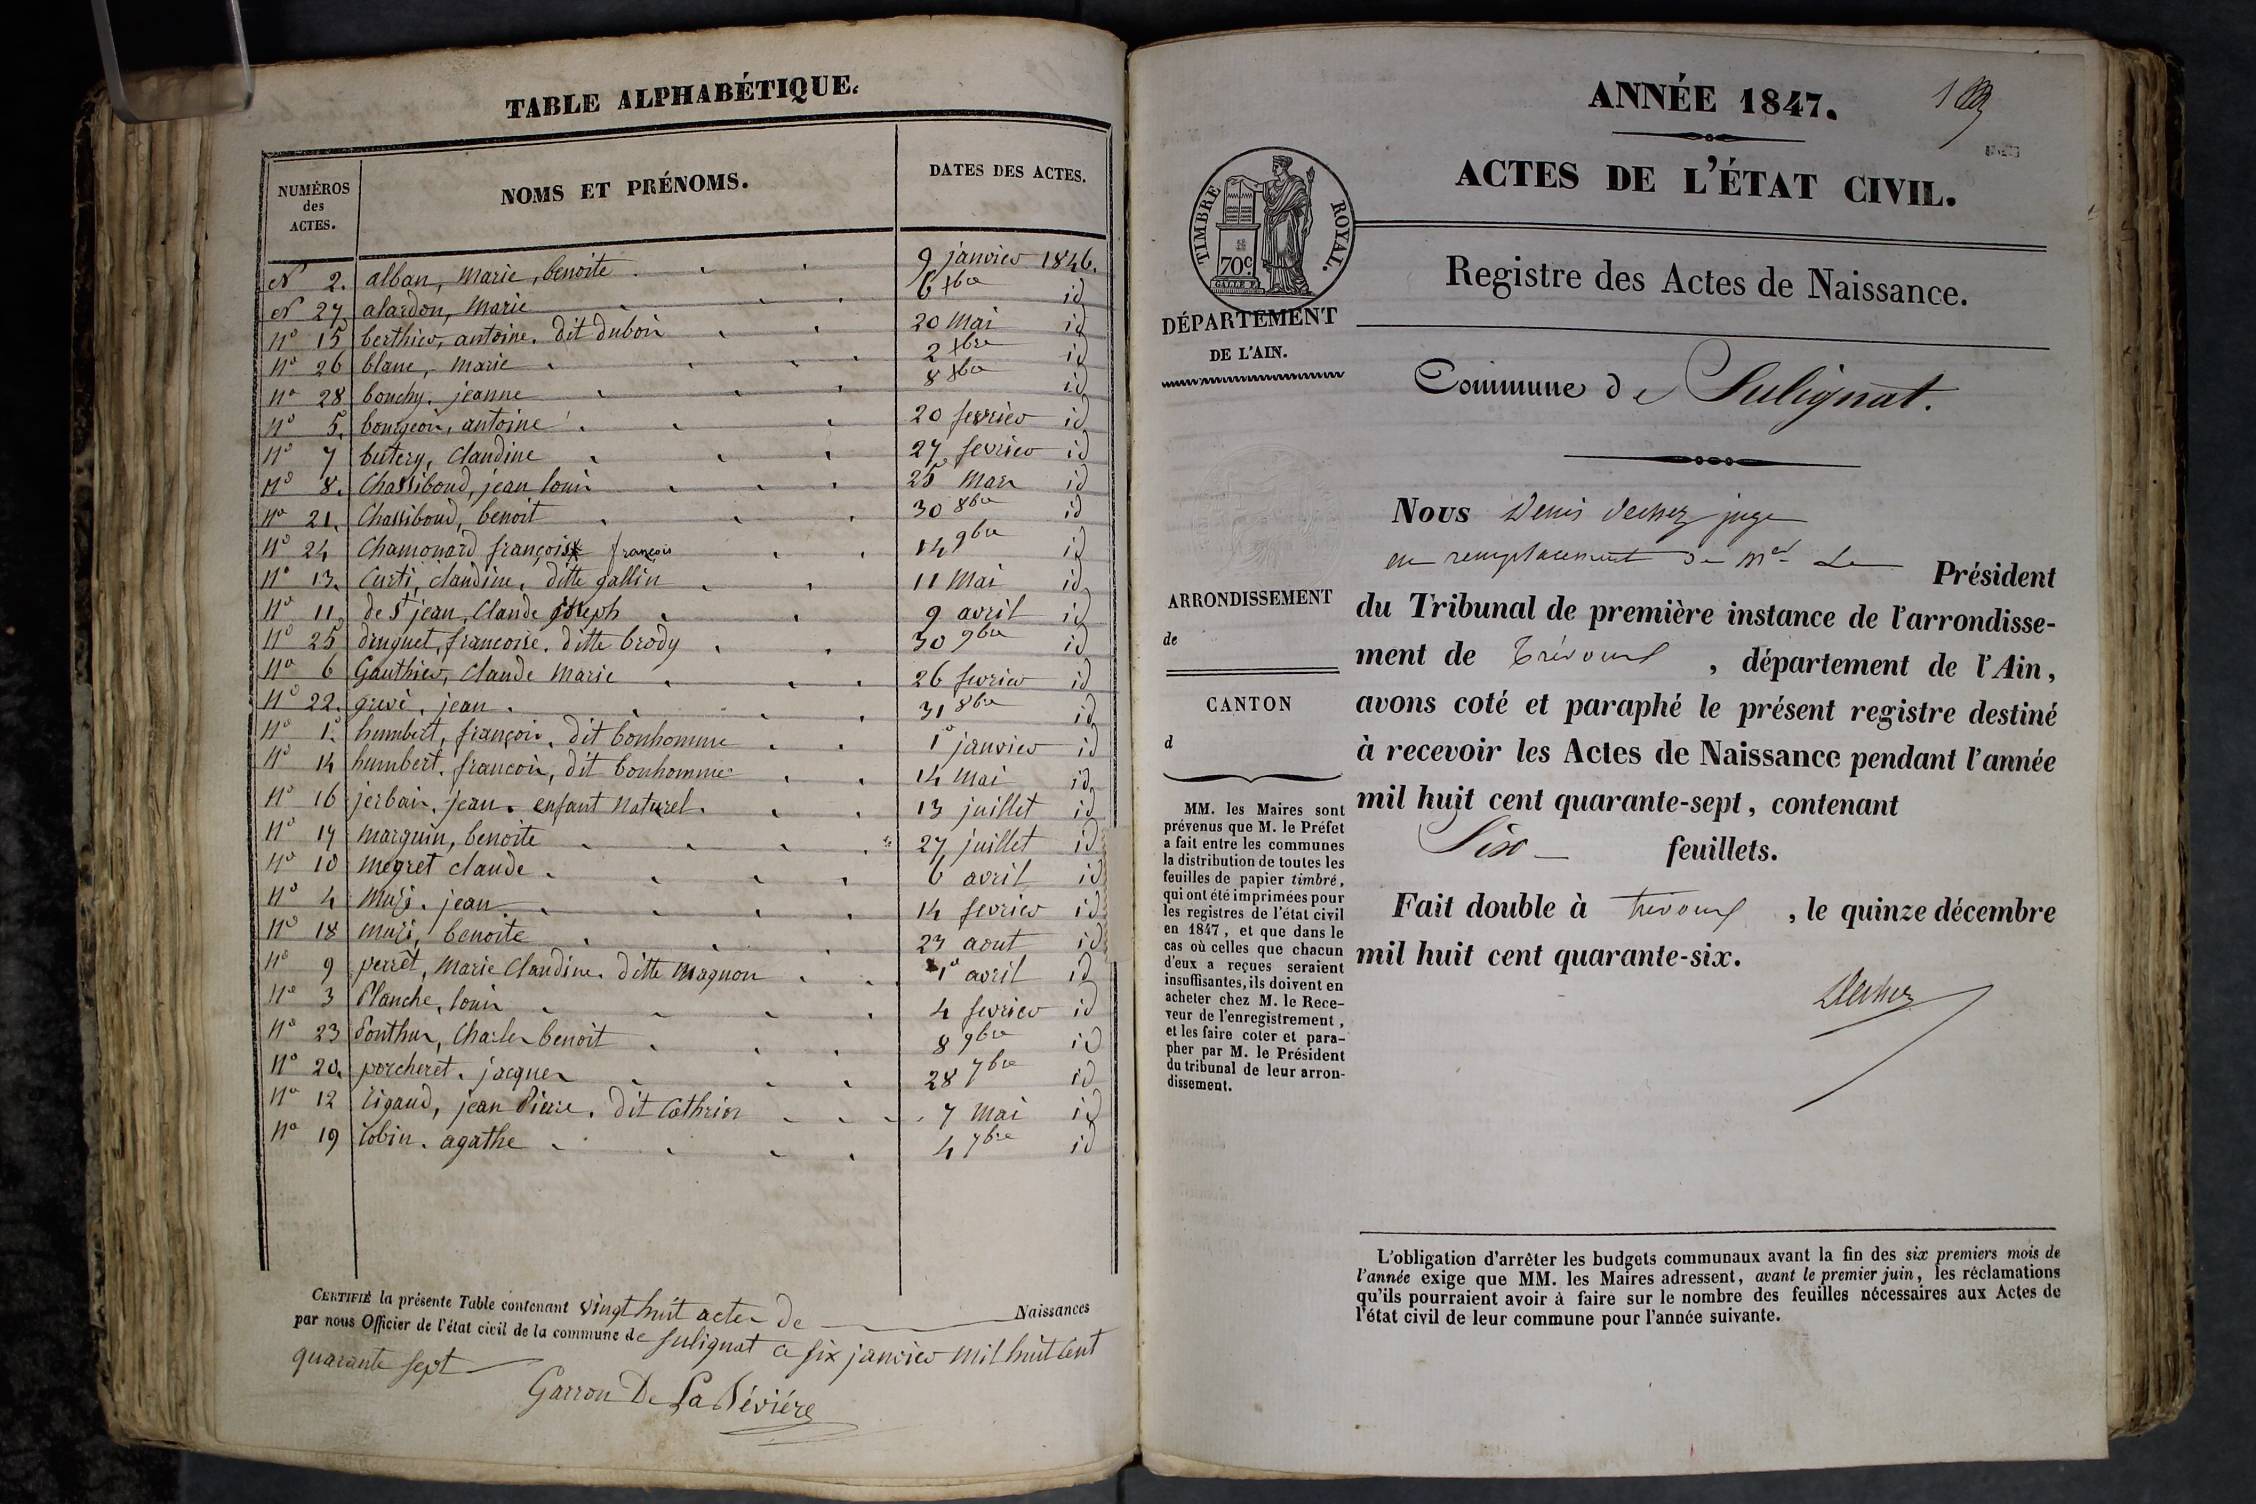 TABLE ALPHABÉTIQUE.
NUMÉROS des ACTES. NOMS ET PRÉNOMS. DATES DES ACTES.
N° 2. alban, marie, benoite 9 janvier 1846.
N° 27 alardon, marie 6 xbre id
n° 15 berthier, antoine. dit dubois 20 mai id
n° 26 blanc, marie 2 xbre id
n° 28 bouchy. jeanne 8 xbre id
n° 5. bourgeois, antoine 20 fevrier id
n° 7 butery, claudine 27 fevrier id
n° 8. Chassiboud, jean louis 25 mars id
n° 21. Chassiboud, benoit 30 8bre id
n° 24 Chamonard françois françois 14 9bre id
n° 13. Curti, claudine. ditte gallin 11 mai id
n° 11 de st jean, Claude joseph 9 avril id
n° 25 druguet, francoise. ditte brody 30 9bre id
n° 6 Gauthier, Claude marie 26 fevrier id
n° 22. grevè, jean. 31 8bre id
n° 1. humbert, françois. dit bonhomme 1° janvier id
n° 14 humbert. francois, dit bonhomme 14 mai id
n° 16 jerbais. jean. enfant naturel. 13 juillet id
n° 17 marguin, benoite 27 juillet id
n° 10 megret claude 6 avril id
n° 4 muzi. jean 14 fevrier id
n° 18 muzi, benoite 23 aout id
n° 9 perret, marie Claudine. ditte magnon 1° avril id
n° 3 Planche, louis 4 fevrier id
n° 23 Ponthus, Charles benoit 8 9bre id
n° 20. porcheret. jacques 28 7bre id
n° 12 rigaud, jean Pierre. dit Cathrin 7 mai id
n° 19 robin. agathe 4 7bre id
CERTIFIÉ la présente Table contenant vingt huit actes de Naissances
par nous Officier de l'état civil de la commune de sulignat ce six janvier mil huit cent
quarante sept
Garron De La Bévière
ANNÉE 1847.
ACTES DE L'ÉTAT CIVIL.
TIMBRE ROYAL.
70c
Registre des Actes de Naissance.
DÉPARTEMENT
DE L'AIN.
Commune de Sulignat.
Nous Denis juge
en remplacement de Mr Le Président
du Tribunal de première instance de l'arrondisse-
ment de Trévoux, département de l'Ain,
avons coté et paraphé le présent registre destiné
à recevoir les Actes de Naissance pendant l'année
mil huit cent quarante-sept, contenant
Six feuillets.
Fait double à trévoux, le quinze décembre
mil huit cent quarante-six.
ARRONDISSEMENT
de
CANTON
d
MM. les Maires sont
prévenus que M. le Préfet
a fait entre les communes
la distribution de toutes les
feuilles de papier timbré,
qui ont été imprimées pour
les registres de l'état civil
en 1847, et que dans le
cas où celles que chacun
d'eux a reçues seraient
insuffisantes, ils doivent en
acheter chez M. le Rece-
veur de l'enregistrement,
et les faire coter et para-
pher par M. le Président
du tribunal de leur arron-
dissement.
L'obligation d'arrêter les budgets communaux avant la fin des six premiers mois de
l'année exige que MM. les Maires adressent, avant le premier juin, les réclamations
qu'ils pourraient avoir à faire sur le nombre des feuilles nécessaires aux Actes de
l'état civil de leur commune pour l'année suivante.